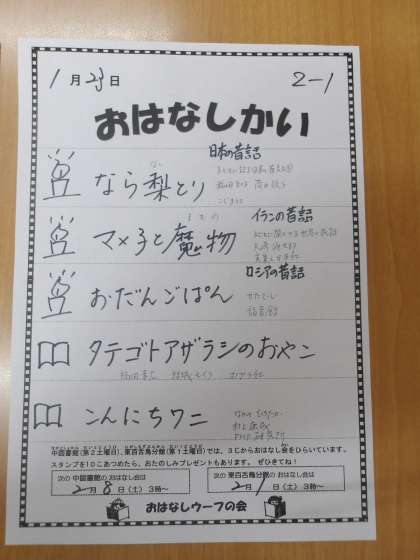 1月23日 2-1
おはなしかい
日本の昔話
なし
なら梨とり
こぐま社
まもの
イランの昔話
マメ子と魔物
ロシアの昔話
おだんごぱん
せたていじ
福音館
タテゴトアザラシのおやこ
ポプラ社
こんにちワニ
村上康成
PHP研究所
中図書館(第2土曜日)、東百舌鳥分館(第1土曜日)では、3じからおはなし会をひらいています。
スタンプを10こあつめたら、おたのしみプレゼントもあります。 ぜひきてね!
次の 中図書館の おはなし会は
2月 8日(土)3時～
次の 東百舌鳥分館の おはなし会は
2月 1日(土)3時～
おはなしウーフの会